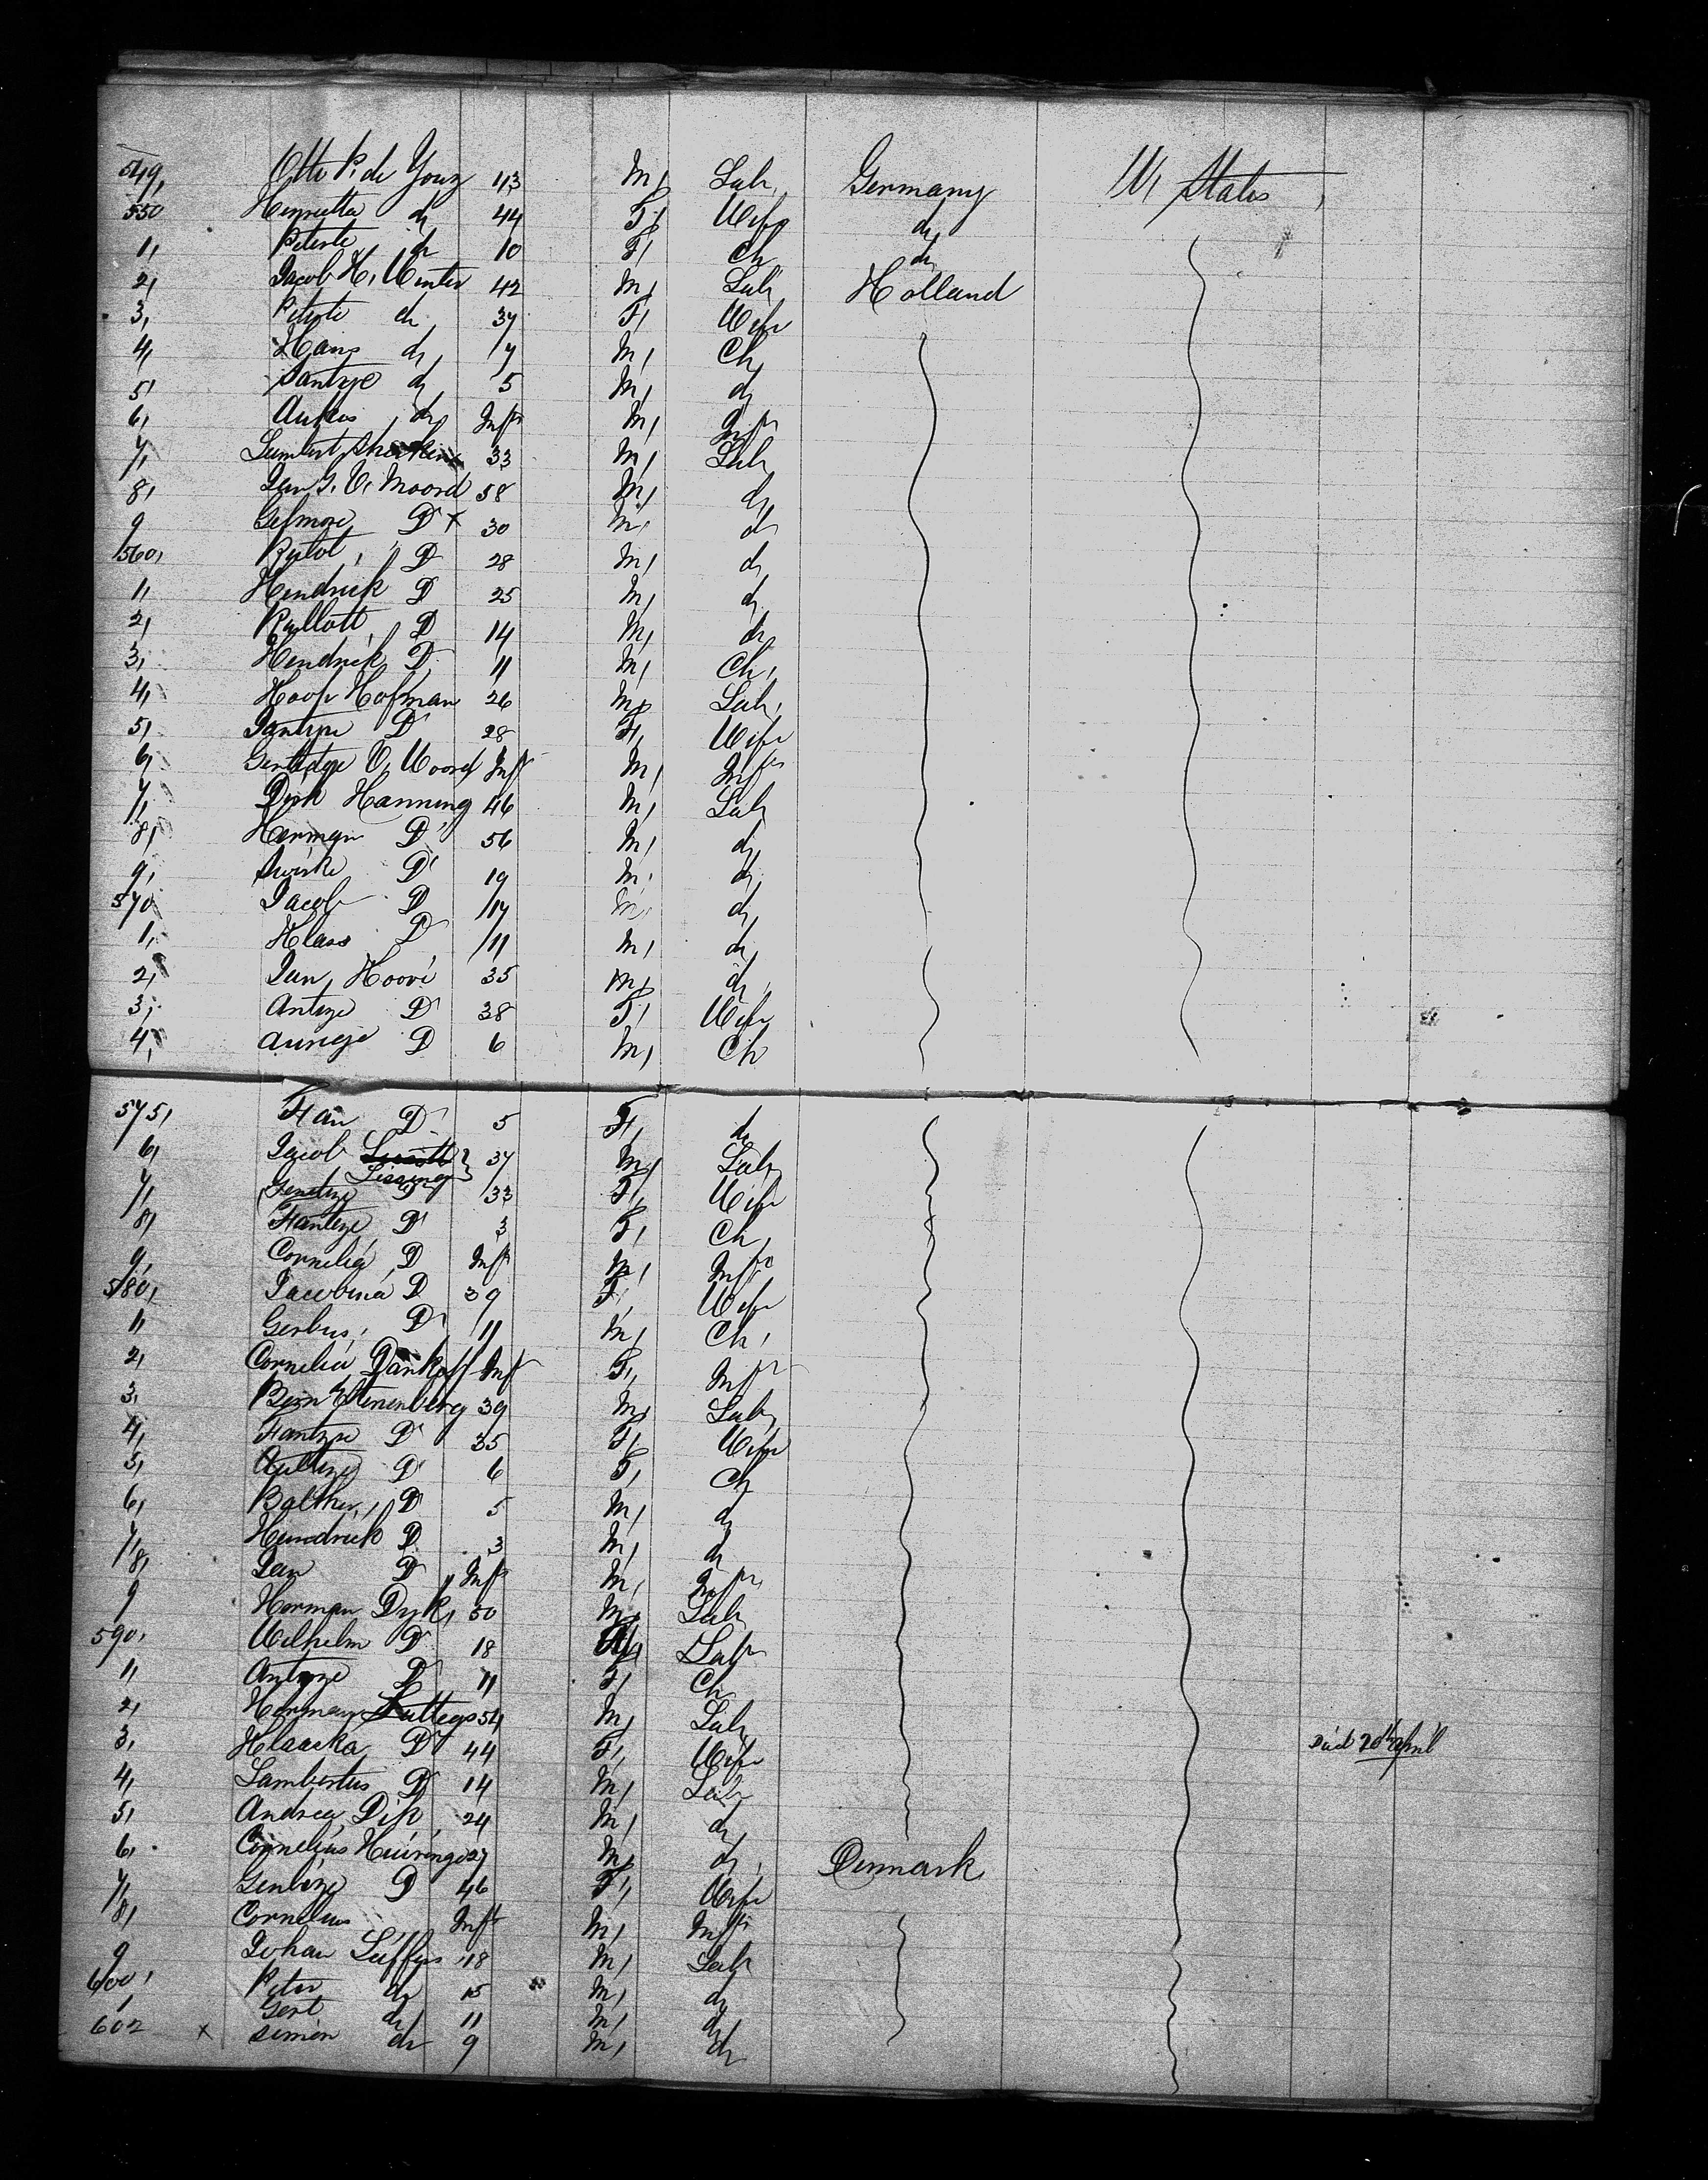 549, Otto P. de Yong 43 M, Lab, Germany U, States,
550 Henrietta do 44 F, Wife do
1, Peterte do 10 F, Ch do
2, Jacob H, Winter 42 M, Lab, Holland
3, Peterte do 37 F, Wife
4, Hans do, 7 M, Ch,
5, Jantze do 5 M, do
6, Aukes, do, Inft M, Inft
7, Lambert 33 M, Lab
8, Jan G. V, Moord 58 M, do
9 D x 30 M, do
560, Rulof, D 28 M, do
1, Hendrick D 25 M, do
2, Rullott, D 14 M, do
3, Hendrick D 11 M, Ch,
4, Hoof Hofman 26 M, Lab,
5, Jantze D 28 F, Wife
6, V, Woord Inft M, Inft
7, Derk Hanning 46 M, Lab
8, Harman D 56 M, do
9, D 19 M, do
570 Jacob D 17 M, do
1, Klass D 11 M, do
2, Jan, Hoovi 35 M, do,
3, Antze D 38 F, Wife
4, D 6 M, Ch
575, Han D 5 F, do
6, Jacob Lissing 37 M, Lab,
7, D 33 F, Wife
8, Fantze, D 3 F, Ch,
9, Cornelia, D Inft M, Inft
580, Jacobina D 39 F, Wife
1, Gerbus, D 11 M, Ch,
2, Cornelia Inft F, Inft
3, 39 M, Lab,
4, Fantze D 35 F, Wife
5, D 6 F, Ch
6, D 5 M, do
7, Hendrick D 3 M, do
8, Jan D Inft M, Inft
9 Herman Dyk, 50 M, Lab
590, Wilhelm D 18 Lab
1, Antze D 11 F, Ch
2, Herman 54 M, Lab,
3, Klaaska D 44 F, Wife Died 20th April
4, Lambertus D 14 M, Lab
5, Andrea, Dik, 24 M, do
6, Cornelius 27 M, do, Denmark
7, D 46 F, Wife
8, Cornelius Inft M, Inft
9 Johan Luffers 18 M, Lab
600, Peter do 15 M, do
1 Gert do 11 M, do
602 x Simon do 9 M, do